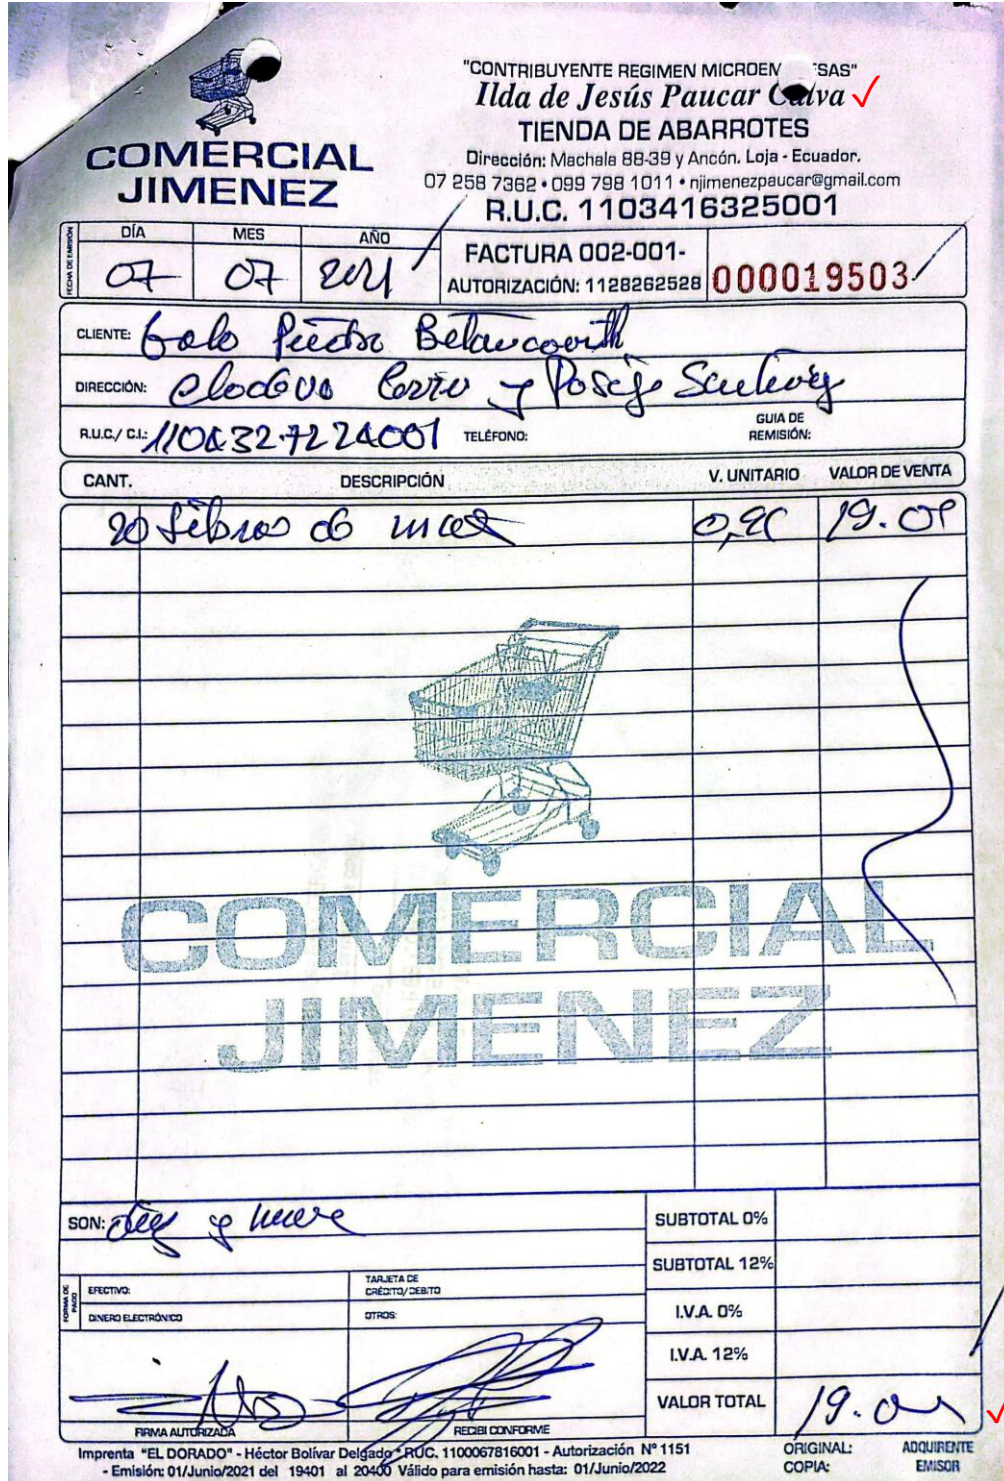 "CONTRIBUYENTE REGIMEN MICROEM SAS"
Ilda de Jesús Paucar Calva
TIENDA DE ABARROTES
COMERCIAL
JIMENEZ
Dirección: Machala 88-39 y Ancón. Loja - Ecuador.
07 258 7362 • 099 798 1011 • njimenezpaucar@gmail.com
R.U.C. 1103416325001
FECHA DE EMISIÓN DÍA MES AÑO
07 07 2021
FACTURA 002-001-
AUTORIZACIÓN: 1128262528 000019503
CLIENTE: Galo Piedra Betancourth
DIRECCIÓN: y
R.U.C./ C.I.: TELÉFONO: GUIA DE REMISIÓN:
CANT. DESCRIPCIÓN V. UNITARIO VALOR DE VENTA
20 libras de
COMERCIAL
JIMENEZ
SON: diez y nueve
SUBTOTAL 0%
SUBTOTAL 12%
FORMA DE PAGO
EFECTIVO: TARJETA DE CRÉDITO/DEBITO
DINERO ELECTRÓNICO OTROS:
I.V.A. 0%
I.V.A. 12%
VALOR TOTAL 19.00
FIRMA AUTORIZADA RECIBI CONFORME
Imprenta "EL DORADO" - Héctor Bolívar Delgado - RUC. 1100067816001 - Autorización Nº 1151
- Emisión: 01/Junio/2021 del 19401 al 20400 Válido para emisión hasta: 01/Junio/2022
ORIGINAL: ADQUIRENTE
COPIA: EMISOR